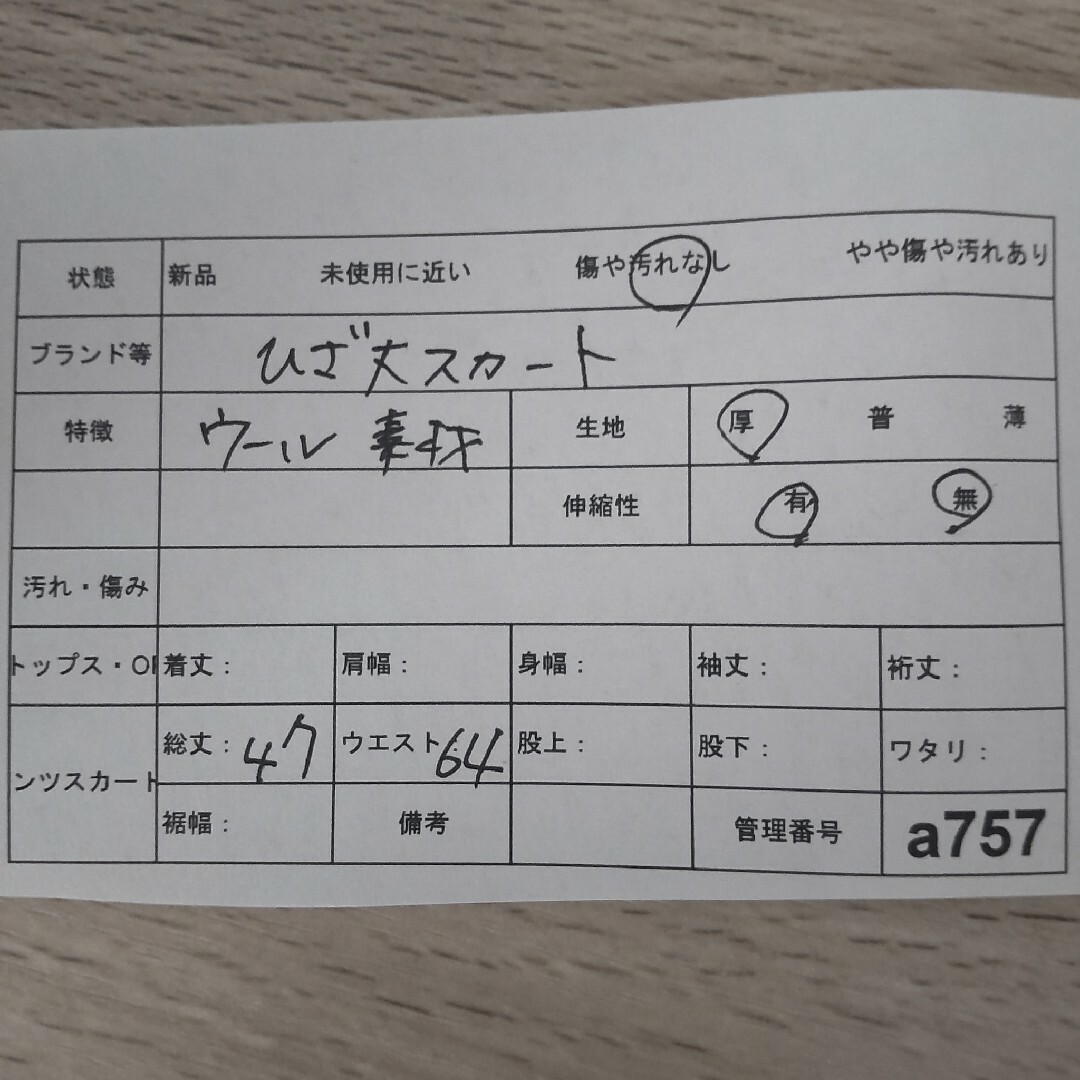 状態 新品 未使用に近い 傷や汚れなし やや傷や汚れあり
ブランド等 ひざ丈スカート
特徴 ウール素材 生地 厚 普 薄
伸縮性 有 無
汚れ・傷み
トップス・OP 着丈： 肩幅： 身幅： 袖丈： 裄丈：
総丈：47 ウエスト：64 股上： 股下： ワタリ：
ンツスカート
裾幅： 備考 管理番号 a757